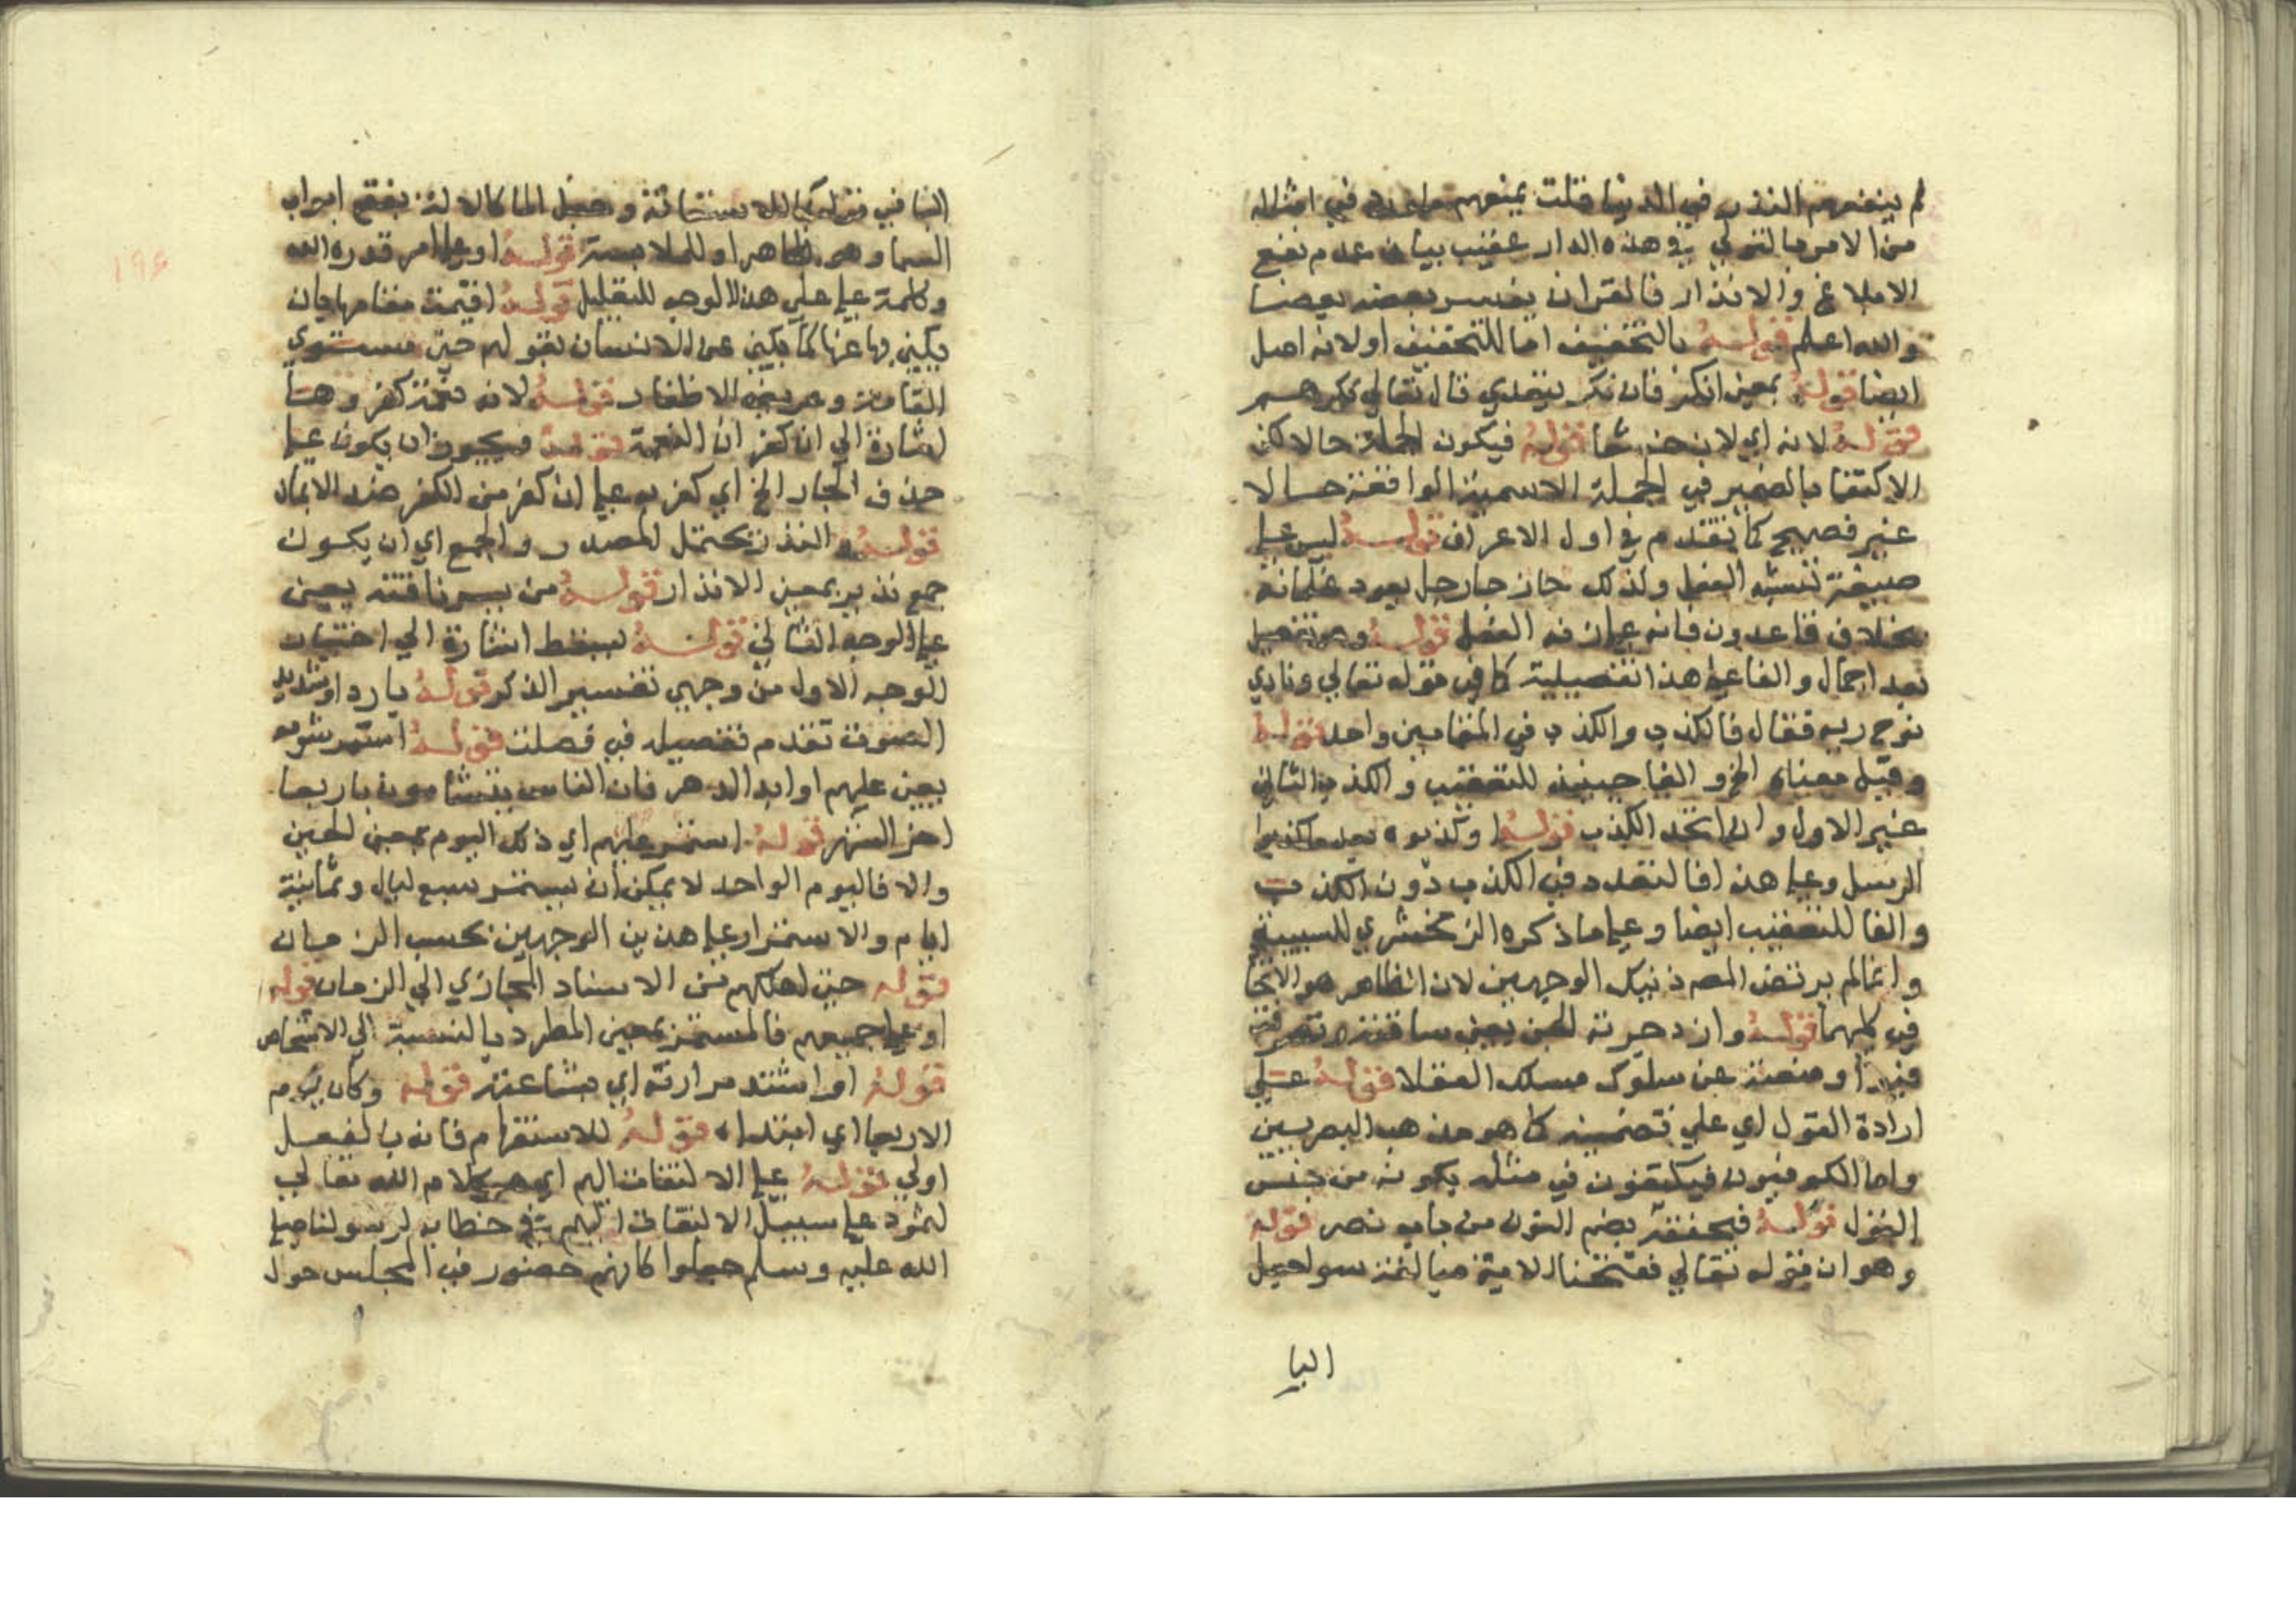 لم ينفعهم النذر في الدنيا قلت يمنعهم ما ورد في امثاله
من الامر بالتولي في هذه الدار عقيب بيان عدم نفع
الابلاغ والانذار فالقران يفسر بعضه بعضا
والله اعلم قوله بالتخفيف اما للتخفيف او لانه اصل
ايضا قوله بمعنى انكر فان نكر يتعدي قال تعالي نكرهم
قوله لانه اي لان خشعا قوله فيكون الجملة حالا لكن
الاكتفا بالضمير في الجملة الاسمية الواقعة حالا
غير فصيح كما تقدم في اول الاعراف قوله ليس علي
صيغة تشبه الفعل ولذلك جاز جا رجل يعود غلمانه
بخلاف قاعدون فانه علي زنه الفعل قوله وهو تفصيل
بعد اجمال والفا علي هذا تفصيلية كما في قوله تعالي ونادي
نوح ربه فقال فالكذب والكذب في المقامين واحد قوله
وقيل معناه الخ والفا حينئذ للتعقيب والكذب الثاني
غير الاول وان اتحد الكذب قوله او كذبوه بعد ما كذبوا
الرسل وعلي هذا فالتعدد في الكذب دون الكذب
والفا للتعقيب ايضا وعلي ما ذكره الزمخشري للسببية
وانما لم يرتض المص ذنيك الوجهين لان الظاهر هو الاتحا
في كلهما قوله وازدجرته الجن يعني ساقته وتصرفت
فيه او منعته عن سلوك مسلك العقلا قوله علي
ارادة القول اي علي تضمينه كما هو مذهب البصريين
واما الكوفيون فيكتفون في مثله بكونه من جنس
القول قوله فيخنقه بضم النون من باب نصر قوله
وهو ان قوله تعالي ففتحنا الاية مبالغة سوا جعل
البا
البا في قوله بما للاستعانة وجعل الما كالالة لفتح ابواب
السما وهو الظاهر او للملابسة قوله او علي امر قدره الله
وكلمة علي علي هذا الوجه للتعليل قوله اقيمت مقامها فان
يكني بها عنها كما يكني عن الانسان بقولهم حي مستوي
القامة وعريض الاظفار قوله لانه نعمة كفروها
اشارة الي ان كفر ان النعمة قوله ويجوز ان يكون علي
حذف الجار الخ اي كفر به علي ان كفر من الكفر ضد الايمان
قوله والنذر يحتمل المصدر والجمع اي ان يكون
جمع نذير بمعنى الانذار قوله من يسر ناقته يعني
علي الوجه الثاني قوله للحفظ اشارة الي اختيار
الوجه الاول من وجهي تفسير الذكر قوله باردا او شديد
الصوت تقدم تفصيله في فصلت قوله استمر شومه
يعني عليهم او ابد الدهر فان الناس يتشامون باربعا
اخر الشهر قوله استمر عليهم اي ذلك اليوم بمعنى الحين
والا فاليوم الواحد لا يمكن ان يستمر سبع ليال وثمانية
ايام والاستمرار علي هذين الوجهين بحسب الزمان
قوله حتي اهلكهم من الاسناد المجازي الي الزمان قوله
او علي جميعهم فالمستمر بمعنى المطرد بالنسبة الي الاشخاص
قوله او اشتد مرارته اي بشاعته قوله وكان يوم
الاربعا اي ابتداه قوله للاستفهام فانه بالفعل
اولي قوله علي الالتفات اليهم اي هو كلام الله تعالي
لثمود علي سبيل الالتفات اليهم في خطابه لرسولنا صلي
الله عليه وسلم جعلوا كانهم حضور في المجلس حول
١٩٦